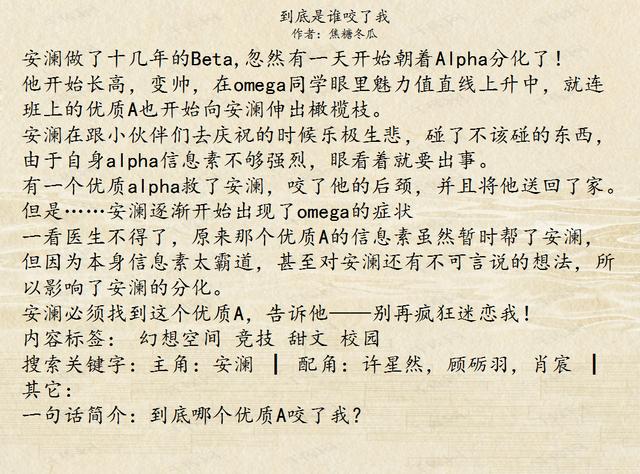 到底是谁咬了我
作者：焦糖冬瓜
安澜做了十几年的Beta,忽然有一天开始朝着Alpha分化了！
他开始长高，变帅，在omega同学眼里魅力值直线上升中，就连
班上的优质A也开始向安澜伸出橄榄枝。
安澜在跟小伙伴们去庆祝的时候乐极生悲，碰了不该碰的东西，
由于自身alpha信息素不够强烈，眼看着就要出事。
有一个优质alpha救了安澜，咬了他的后颈，并且将他送回了家。
但是……安澜逐渐开始出现了omega的症状
一看医生不得了，原来那个优质A的信息素虽然暂时帮了安澜，
但因为本身信息素太霸道，甚至对安澜还有不可言说的想法，所
以影响了安澜的分化。
安澜必须找到这个优质A，告诉他——别再疯狂迷恋我！
内容标签： 幻想空间 竞技 甜文 校园
搜索关键字：主角：安澜 ┃ 配角：许星然，顾砺羽，肖宸 ┃
其它：
一句话简介：到底哪个优质A咬了我？